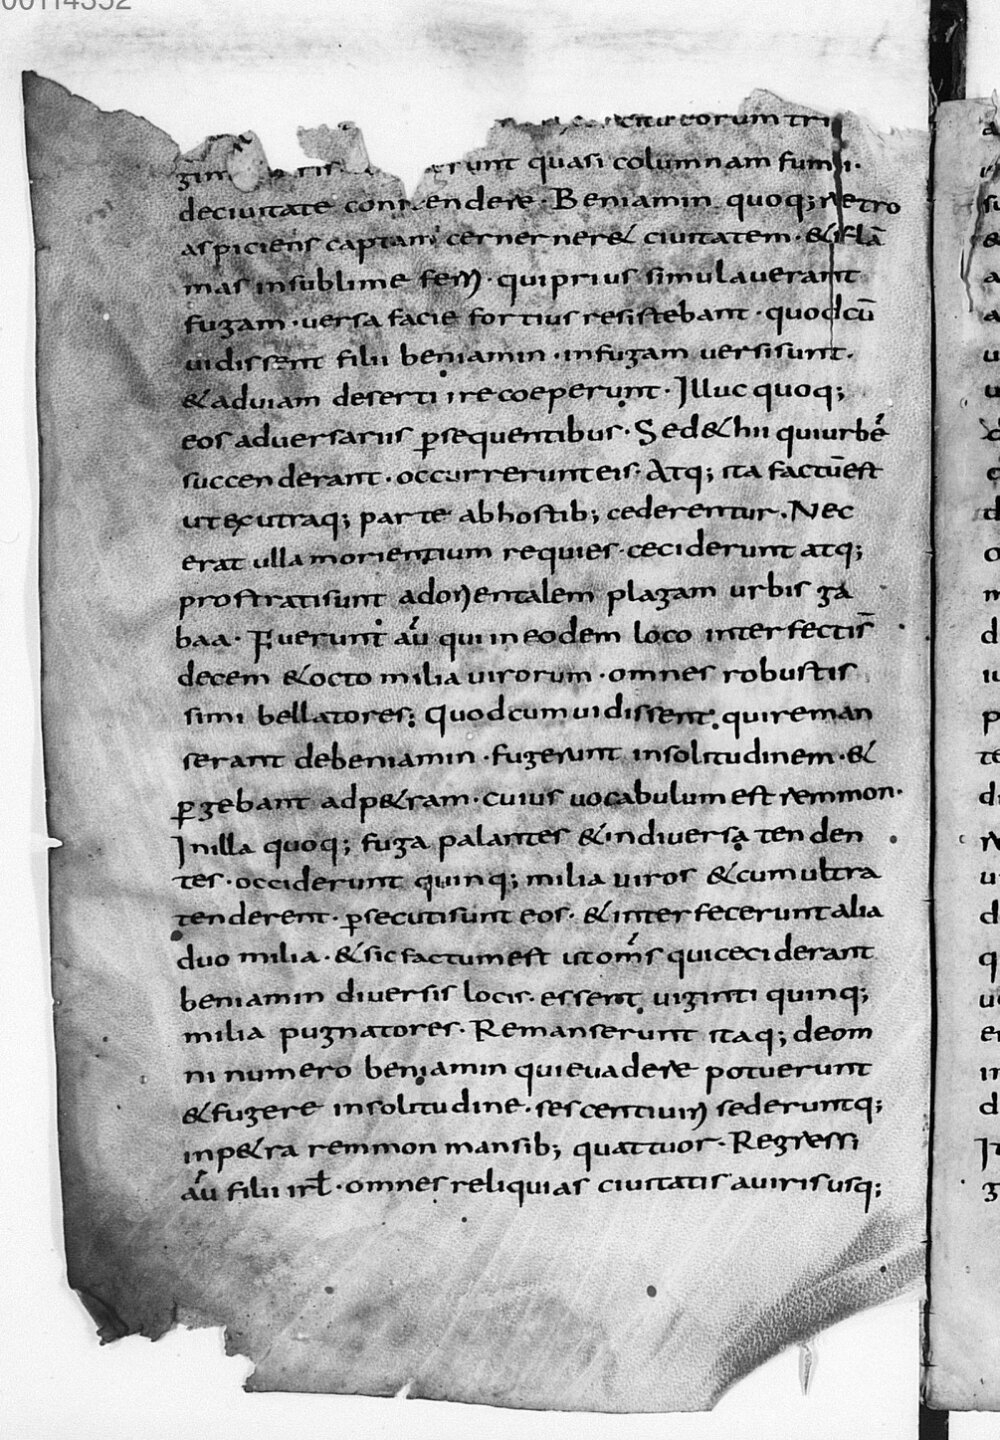 00114352
eorum tri
runt quasi columnam fumi·
deciuitate conscendere· Beniamin quoq; retro
aspiciens captam cernernere& ciuitatem· & flā
mas insublime ferri· quiprius simulauerant
fugam· uersa facie fortius resistebant· quodcū
uidissent filii beniamin· infugam uersisunt·
& aduiam deserti ire coeperunt· Illuc quoq;
eos aduersariis ꝑsequentibus· Sed & hii quiurbē
succenderant· occurrerunt eis· Atq; ita factūest
utexutraq; parte abhostib; cederentur· Nec
erat ulla morientium requies· ceciderunt atq;
prostratisunt adorientalem plagam urbis ga
baa· Fuerunt aū qui in eodem loco interfectis̄
decem & octo milia uirorum· omnes robustis
simi bellatores; Quodcum uidissent· quireman
serant debeniamin· fugerunt insolitudinem· &
ꝑgebant adp&ram· cuius uocabulum est remmon·
Inilla quoq; fuga palantes & indiuersa tenden
tes· occiderunt quinq; milia uiros & cum ultra
tenderent· ꝑsecutisunt eos· & interfecerunt alia
duo milia· & sic factum est utom̄s quiceciderant
beniamin diuersis locis· essent uiginti quinq;
milia pugnatores· Remanserunt itaq; deom
ni numero beniamin quieuadere potuerunt
& fugere insolitudine· sescentiuiri sederuntq;
inp&ra remmon mensib; quattuor· Regressi
aū filii isrł· omnes reliquias ciuitatis auirisusq;